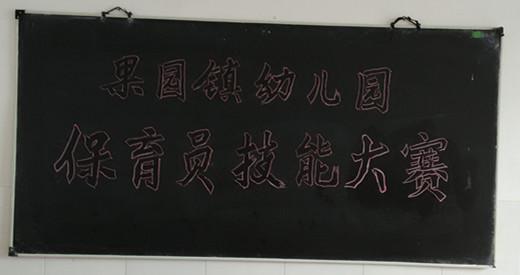 果园镇幼儿园
保育员技能大赛